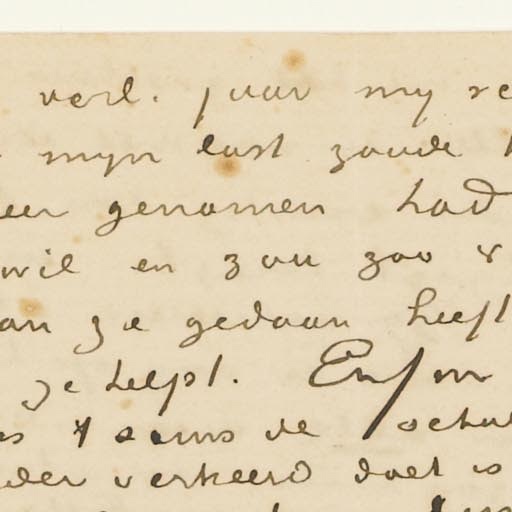 verl. jaar my
mijn last zoude
genomen had
wil en zou zoo
ze gedaan heeft
geholpt. Enfin
soms de schul
verkeerd doet is